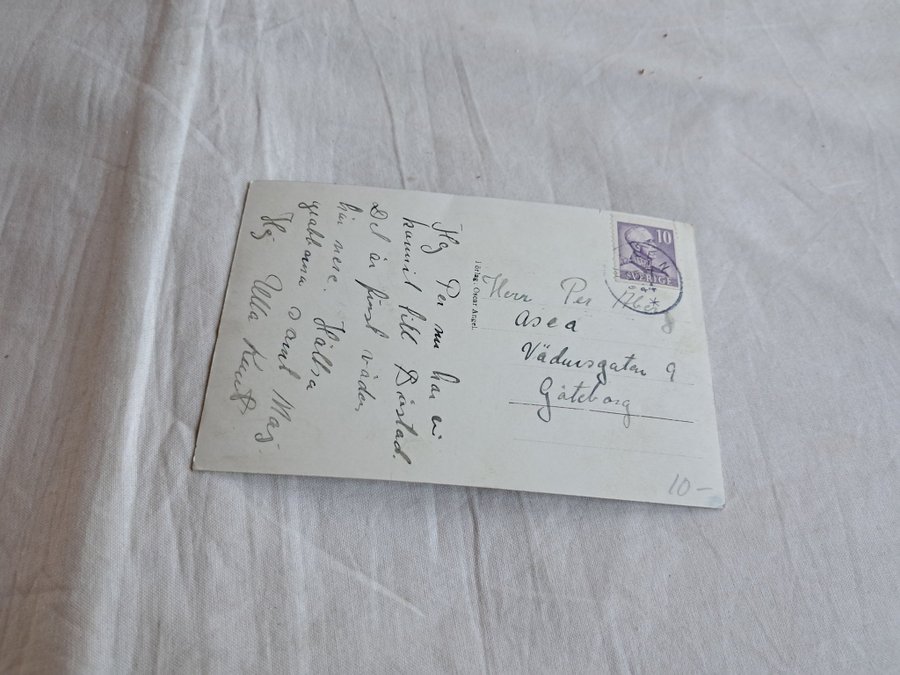 Hej Per nu har vi
kommit till Båstad.
Det är fint väder
här nere. Hälsa
grabbarna samt Maj.
Hej Ulla
Förlag: Oscar Angel.
10
SVERIGE
Herr Per
Asea
Vädursgatan 9
Göteborg
10-